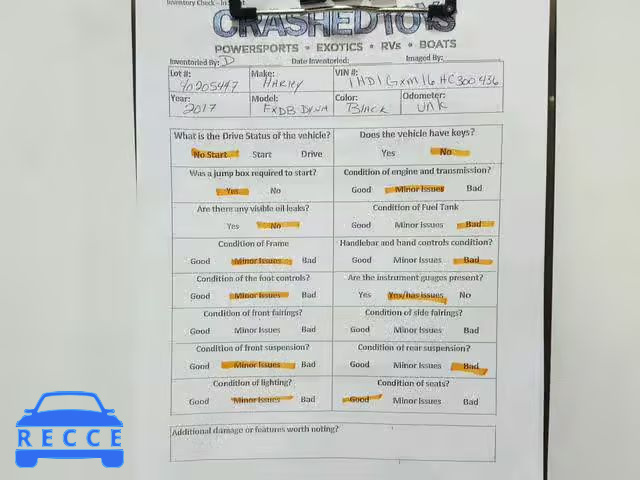 Inventory Check - In
CRASHEDTOYS
POWERSPORTS • EXOTICS • RVs • BOATS
Inventoried By: D Date Inventoried: Imaged By:
Lot #: 40205447 Make: HARLEY VIN #: 1HD1GXM16HC300436
Year: 2017 Model: FXDB DYNA Color: BLACK Odometer: UNK
What is the Drive Status of the vehicle? Does the vehicle have keys?
No Start Start Drive Yes No
Was a jump box required to start? Condition of engine and transmission?
Yes No Good Minor Issues Bad
Are there any visible oil leaks? Condition of Fuel Tank
Yes No Good Minor Issues Bad
Condition of Frame Handlebar and hand controls condition?
Good Minor Issues Bad Good Minor Issues Bad
Condition of the foot controls? Are the instrument guages present?
Good Minor Issues Bad Yes Yes/has issues No
Condition of front fairings? Condition of side fairings?
Good Minor Issues Bad Good Minor Issues Bad
Condition of front suspension? Condition of rear suspension?
Good Minor Issues Bad Good Minor Issues Bad
Condition of lighting? Condition of seats?
Good Minor Issues Bad Good Minor Issues Bad
Additional damage or features worth noting?
RECCE